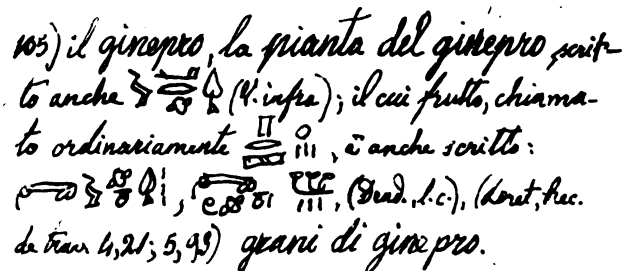 105) il ginepro, la pianta del ginepro, scrit-
to anche (V. infra); il cui frutto, chiama-
to ordinariamente , è anche scritto:
, , (Loret, Rec.
de trav. 4, 21; 5, 93) grani di ginepro.